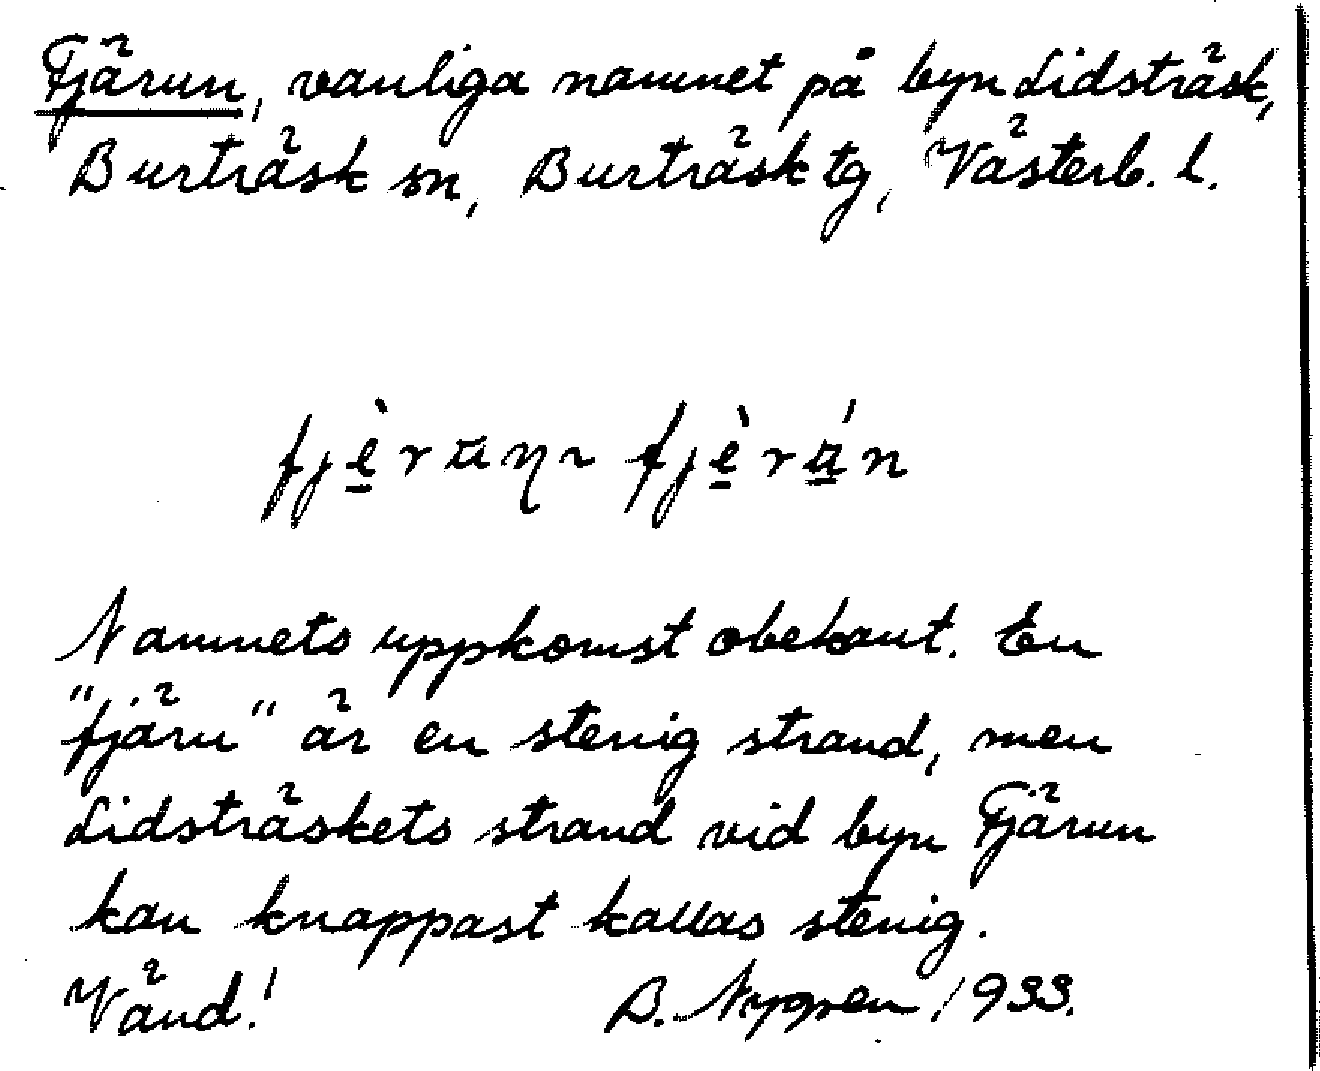 Fjärun, vanliga namnet på byn Lidsträsk,
Burträsk sn, Burträsk tg, Västerb. l.
Namnets uppkomst obekant. En
"fjäru" är en stenig strand, men
Lidsträskets strand vid byn Fjärun
kan knappast kallas stenig.
Vänd! B. Nygren 1933.